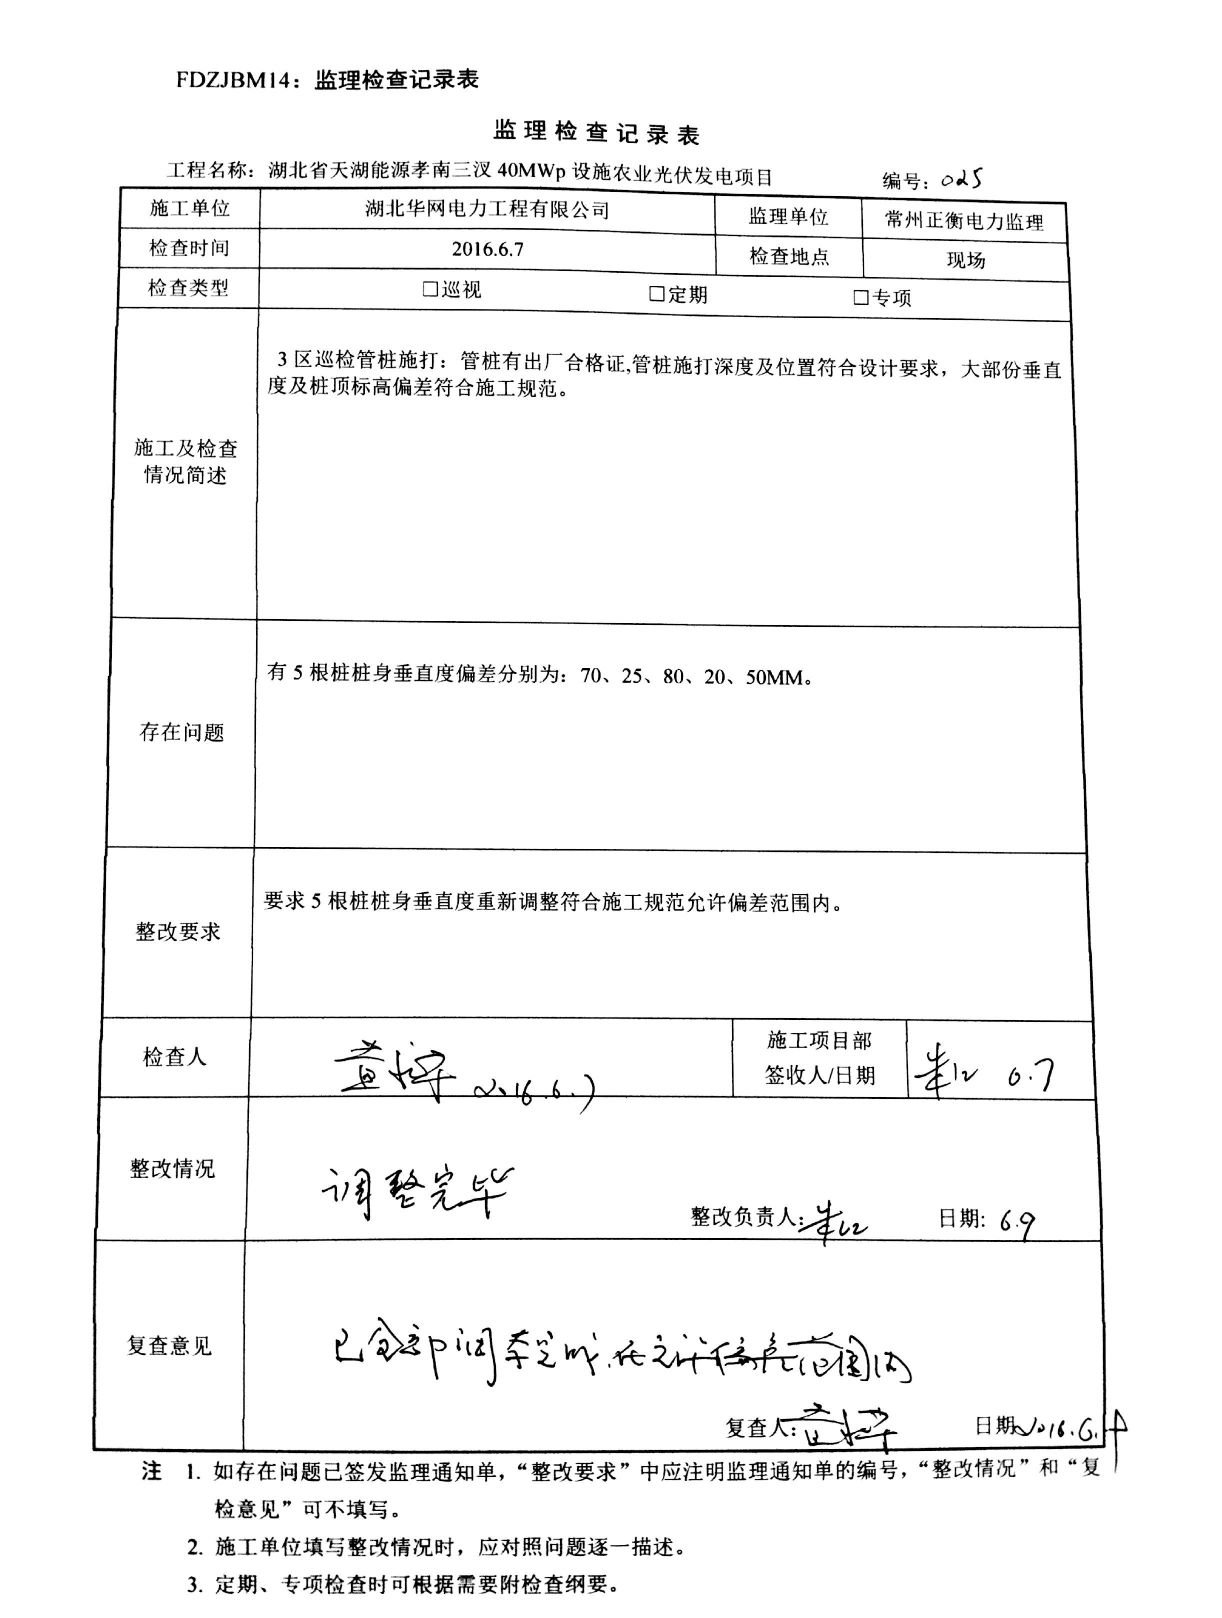 FDZJBM14：监理检查记录表
监理检查记录表
工程名称：湖北省天湖能源孝南三汊 40MWp 设施农业光伏发电项目 编号：025
施工单位 湖北华网电力工程有限公司 监理单位 常州正衡电力监理
检查时间 2016.6.7 检查地点 现场
检查类型 □巡视 □定期 □专项
3 区巡检管桩施打：管桩有出厂合格证,管桩施打深度及位置符合设计要求，大部份垂直
度及桩顶标高偏差符合施工规范。
施工及检查
情况简述
有 5 根桩桩身垂直度偏差分别为：70、25、80、20、50MM。
存在问题
要求 5 根桩桩身垂直度重新调整符合施工规范允许偏差范围内。
整改要求
检查人 2016.6.7 施工项目部
签收人/日期 6.7
整改情况 调整完毕
整改负责人: 日期: 6.9
复查意见 已全部调整完成,在允许偏差范围内
复查人: 日期: 2016.6.
注 1. 如存在问题已签发监理通知单，“整改要求”中应注明监理通知单的编号，“整改情况”和“复
检意见”可不填写。
2. 施工单位填写整改情况时，应对照问题逐一描述。
3. 定期、专项检查时可根据需要附检查纲要。